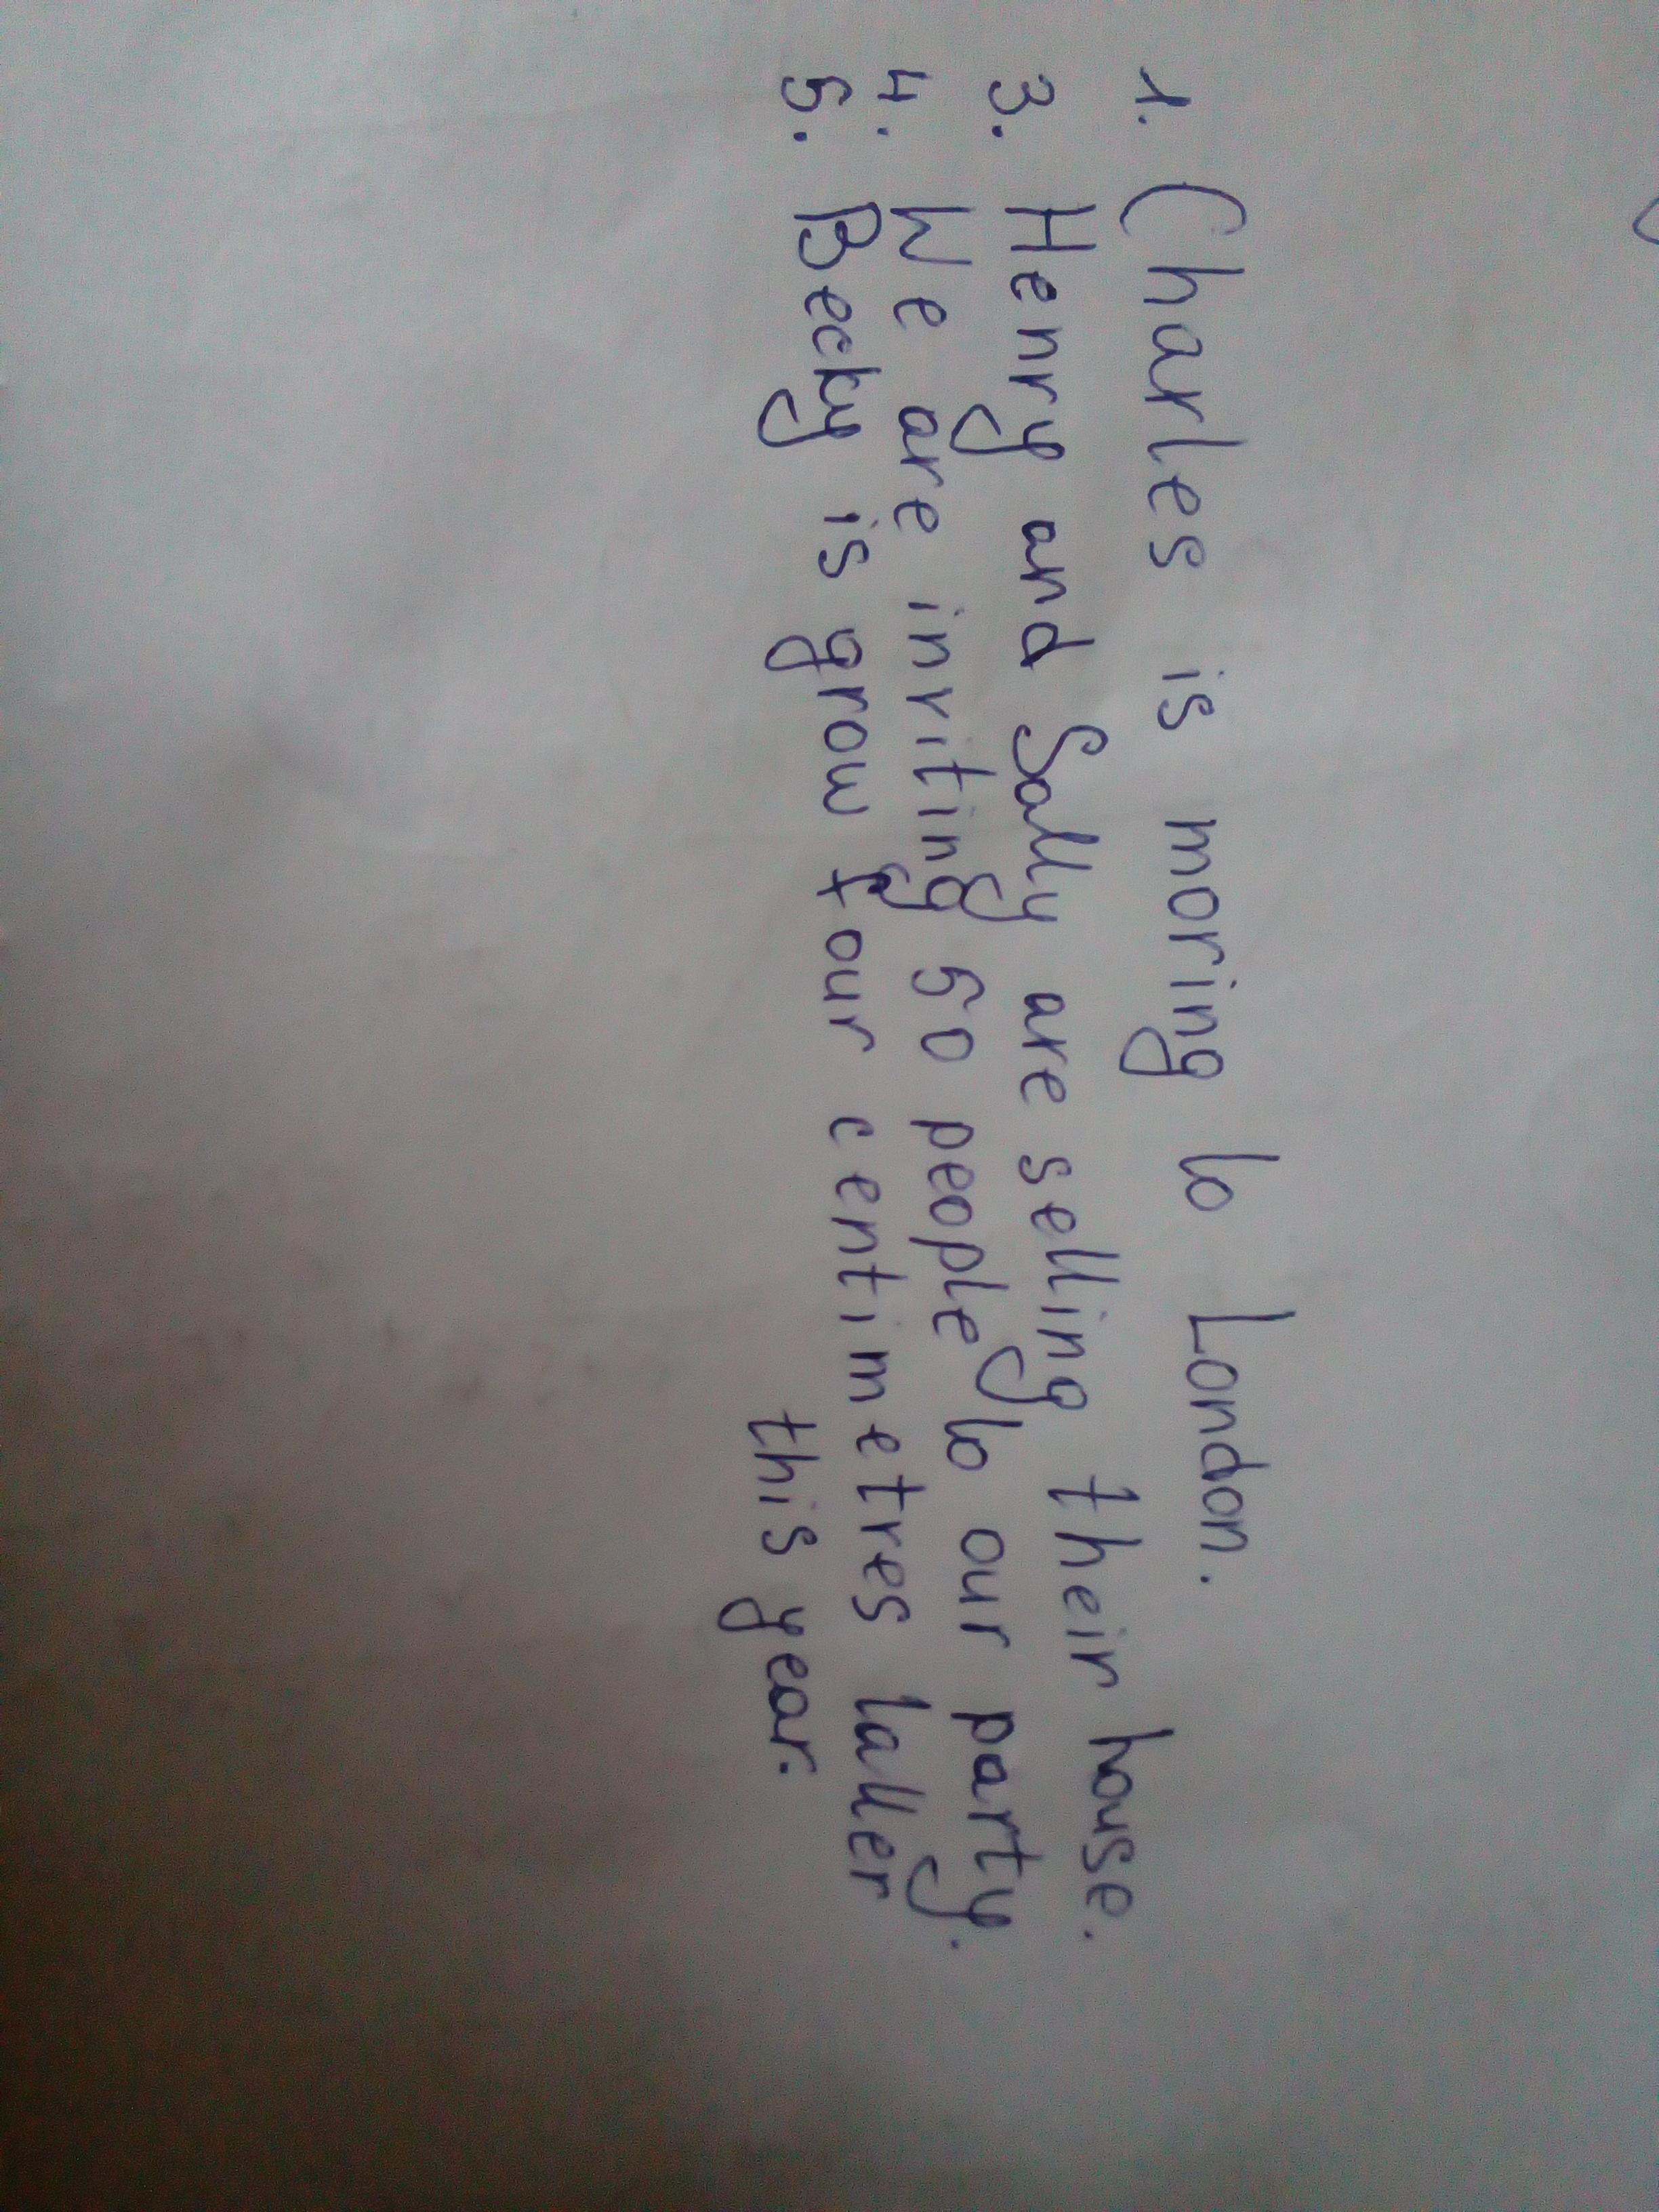 1. Charles is moving to London.
3. Henry and Sally are selling their house.
4. We are inviting 50 people to our party.
5. Becky is grow four centimetres taller
this year.